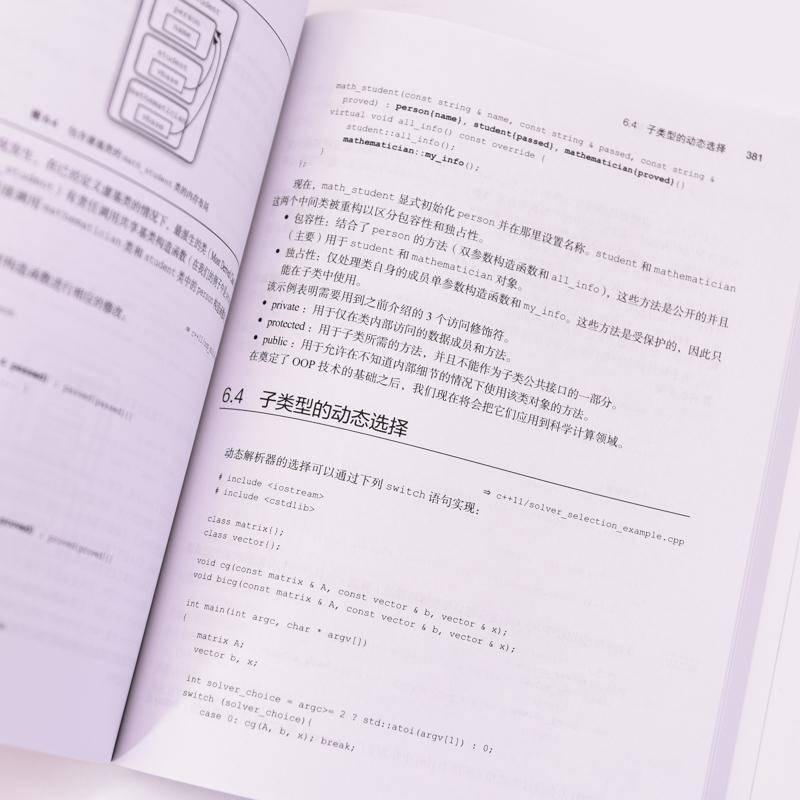 person
name
student
vbase
mathematician
vbase
6.4 子类型的动态选择 381
math_student(const string & name, const string & passed, const string &
proved) : person(name), student(passed), mathematician(proved){}
virtual void all_info() const override {
student::all_info();
mathematician::my_info();
}
};
现在，math_student 显式初始化 person 并在那里设置名称。student 和 mathematician
这两个中间类被重构以区分包容性和独占性。
• 包容性：结合了 person 的方法（双参数构造函数和 all_info），这些方法是公开的并且
（主要）用于 student 和 mathematician 对象。
• 独占性：仅处理类自身的成员单参数构造函数和 my_info。这些方法是受保护的，因此只
能在子类中使用。
该示例表明需要用到之前介绍的 3 个访问修饰符。
• private：用于仅在类内部访问的数据成员和方法。
• protected：用于子类所需的方法，并且不能作为子类公共接口的一部分。
• public：用于允许在不知道内部细节的情况下使用该类对象的方法。
在奠定了 OOP 技术的基础之后，我们现在将会把它们应用到科学计算领域。
6.4 子类型的动态选择
⇒ c++11/solver_selection_example.cpp
动态解析器的选择可以通过下列 switch 语句实现：
# include <iostream>
# include <cstdlib>
class matrix{};
class vector{};
void cg(const matrix & A, const vector & b, vector & x);
void bicg(const matrix & A, const vector & b, vector & x);
int main(int argc, char * argv[])
{
matrix A;
vector b, x;
int solver_choice = argc>= 2 ? std::atoi(argv[1]) : 0;
switch (solver_choice){
case 0: cg(A, b, x); break;